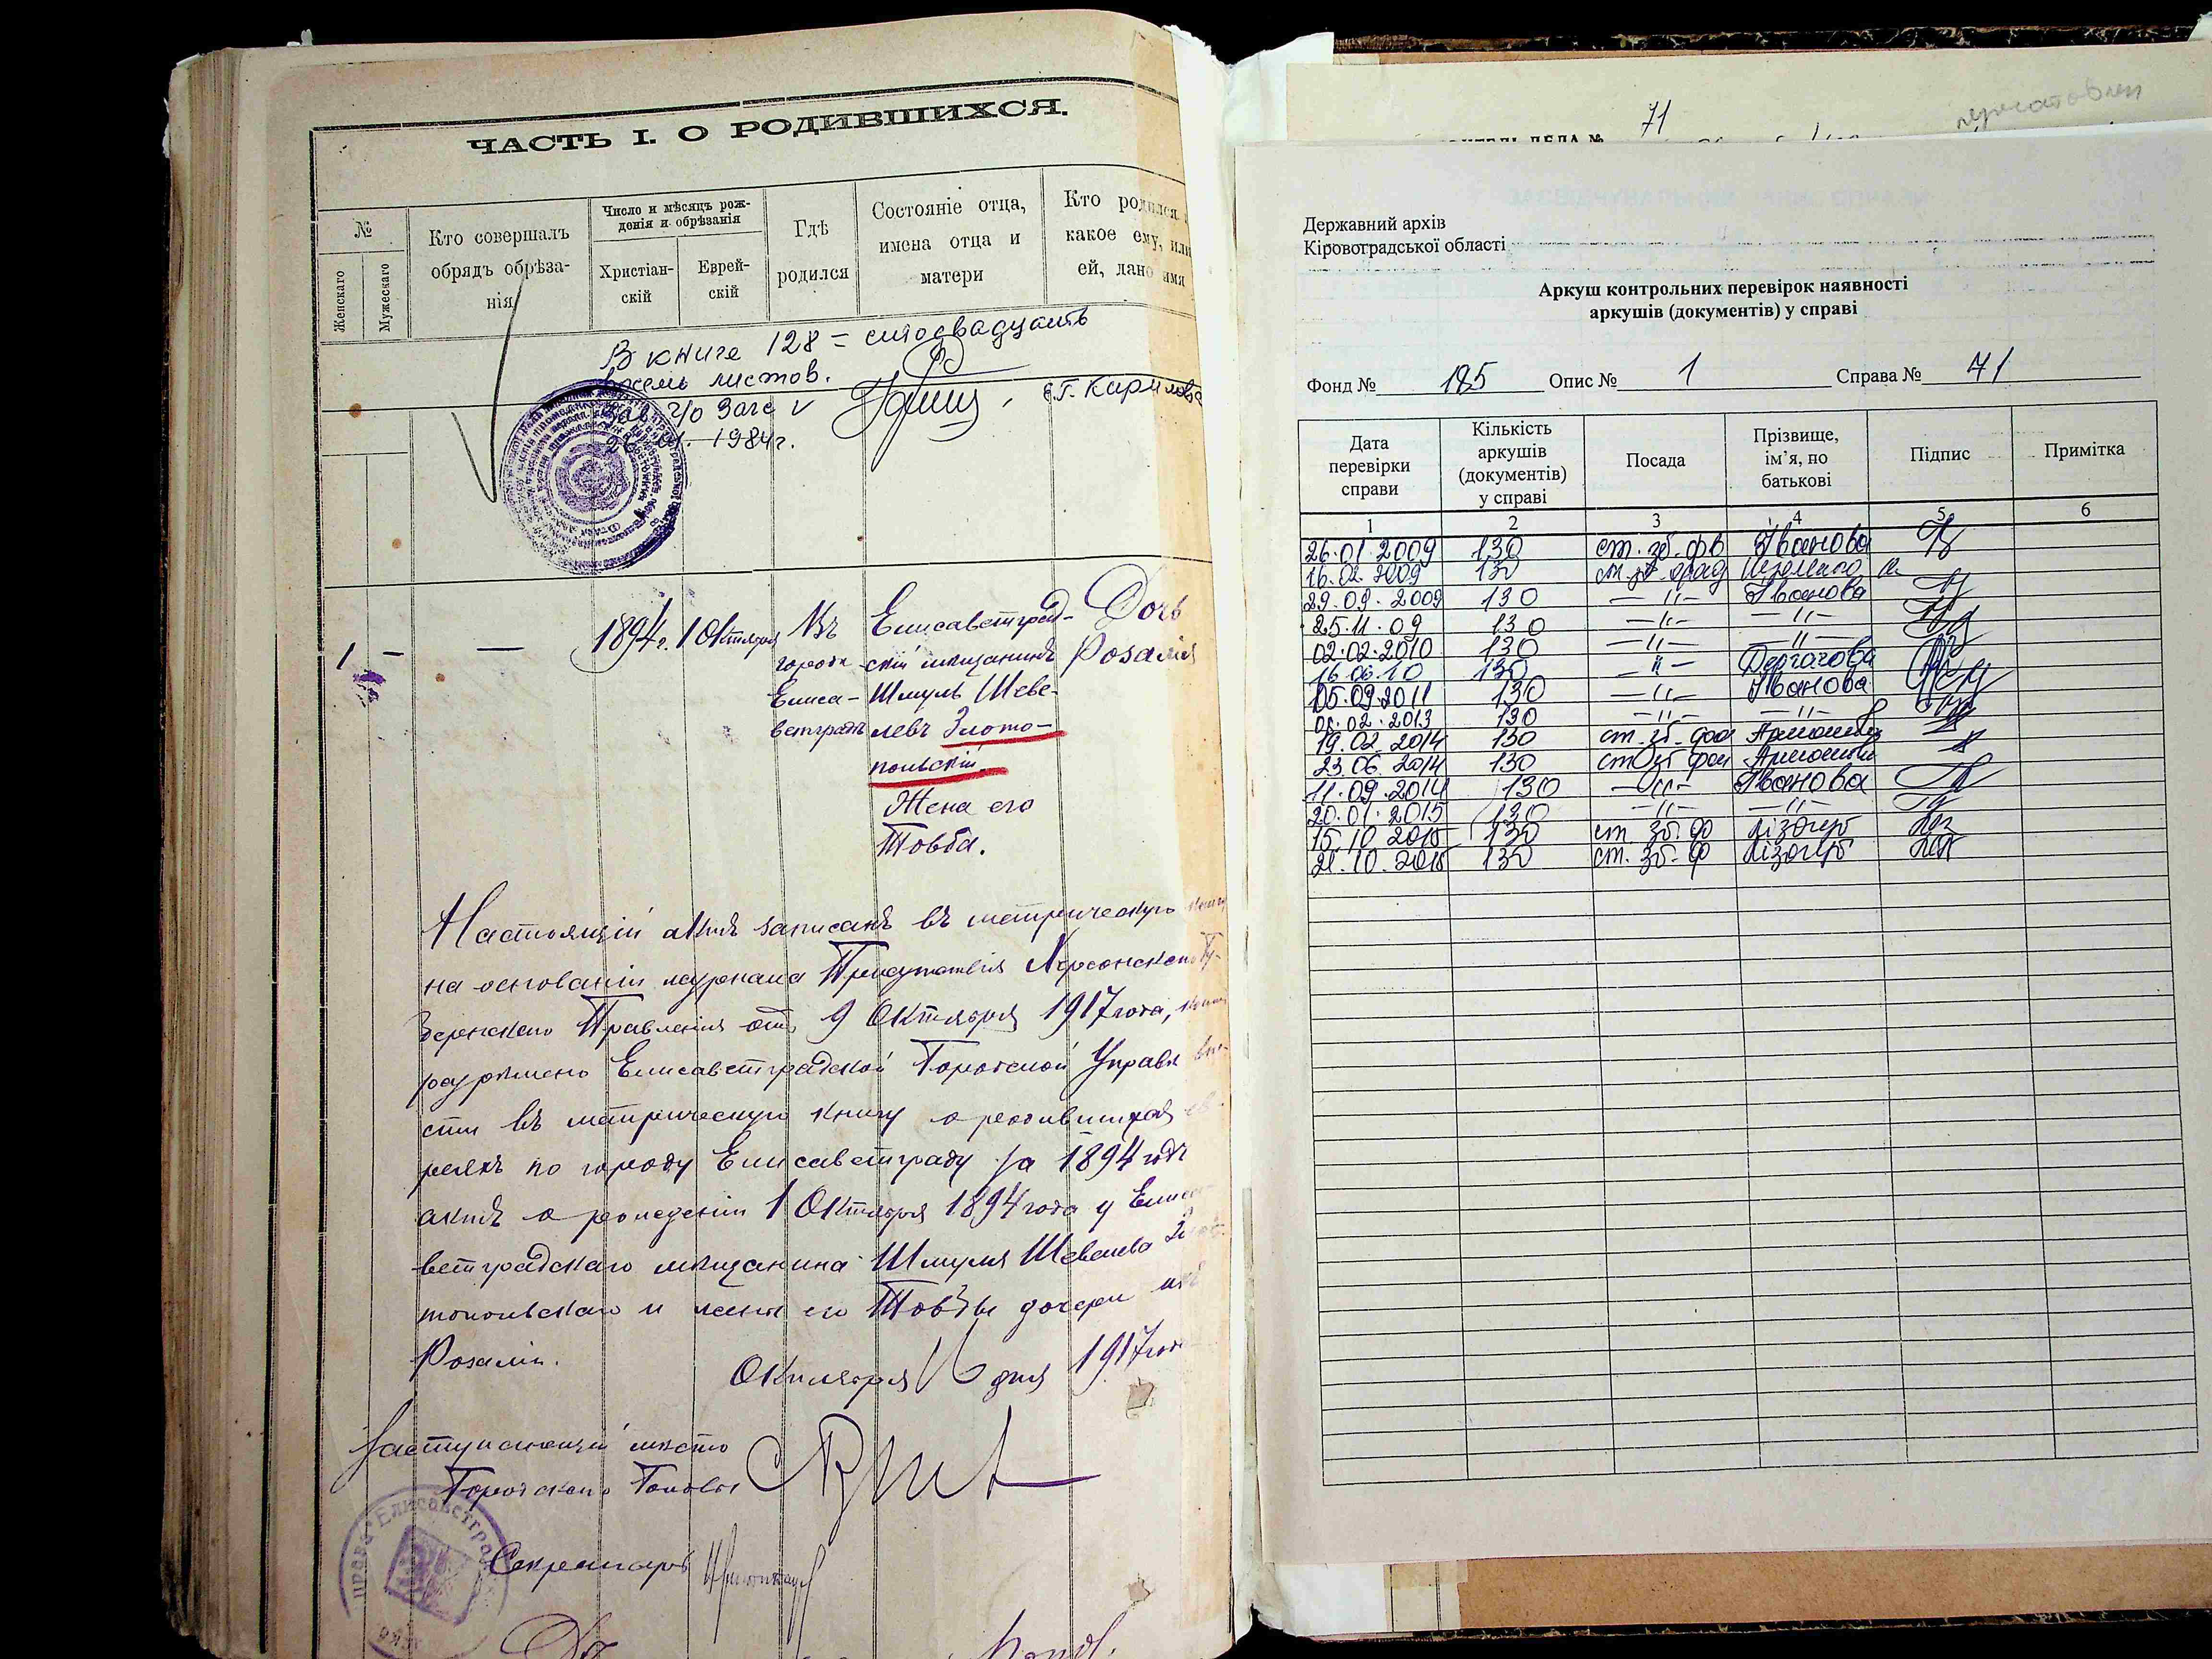 ЧАСТЬ I. О РОДИВШИХСЯ.
№
Женскаго
Мужескаго
Кто совершалъ
обрядъ обрѣза-
нія
Число и мѣсяцъ рож-
денія и обрѣзанія
Христіан-
скій
Еврей-
скій
Гдѣ
родился
Состояніе отца,
имена отца и
матери
Кто родился
какое ему, или
ей, дано имя
В книге 128 = стодвадцать
восемь листов.
Зав. г/о Загс
1984г.
1 — — 1894г. 1 Октября
Въ
городѣ
Елиса-
ветградѣ
Елисаветград-
скій мѣщанинъ
Шмуль Шеве-
левъ Злото-
польскій.
Жена его
Товба.
Дочь
Розалія
Настоящій актъ записанъ въ метрическую
на основаніи журнала Присутствія Херсонскаго Гу-
бернскаго Правленія отъ 9 Октября 1917 года,
разрѣшено Елисаветградской Городской Управѣ вне-
сти въ метрическую книгу о родившихся ев-
реяхъ по городу Елисаветграду за 1894 годъ
актъ о рожденіи 1 Октября 1894 года у Елиса-
ветградскаго мѣщанина Шмуля Шевелева Зло-
топольскаго и жены его Товбы дочери
Розаліи.
Октября 16 дня 1917 года
Заступающій мѣсто
Городского Головы
Секретарь
71
Державний архів
Кіровоградської області
Аркуш контрольних перевірок наявності
аркушів (документів) у справі
Фонд № 185 Опис № 1 Справа № 71
Дата
перевірки
справи
Кількість
аркушів
(документів)
у справі
Посада
Прізвище,
ім’я, по
батькові
Підпис
Примітка
1 2 3 4 5 6
26.01.2009 130 ст. зб. фв Іванова
16.02.2009 130
29.09.2009 130 —〃— Іванова
25.11.09 130 —〃— —〃—
02.02.2010 130 —〃— —〃—
16.06.10 130 —〃— Дергачова
05.09.2011 130 —〃— Іванова
08.02.2013 130 —〃— —〃—
19.02.2014 130 ст. зб.
23.06.2014 130
11.09.2014 130 —〃— Іванова
20.01.2015 130 —〃— —〃—
15.10.2015 130 ст. зб. ф Лізогуб
21.10.2015 130 ст. зб. ф Лізогуб